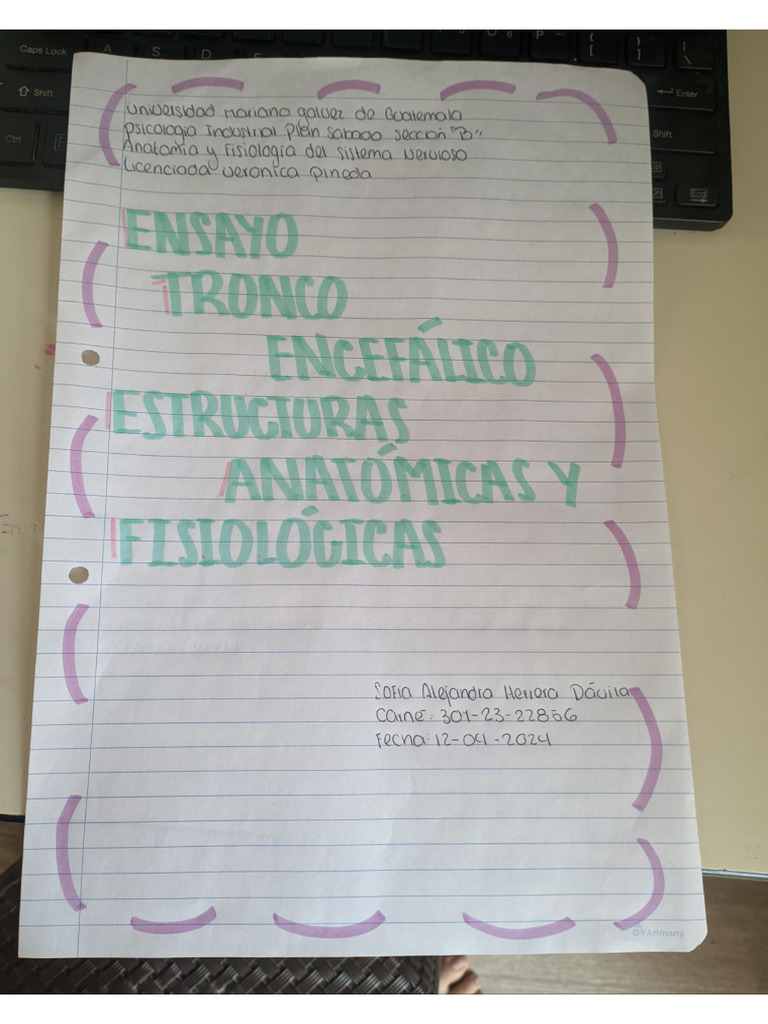 Universidad Mariano galvez de Guatemala
Psicologia Industrial Plan sabado sección "B"
Anatomia y Fisiología del sistema Nervioso
Licenciada veronica pineda
ENSAYO
TRONCO
ENCEFÁLICO
ESTRUCTURAS
ANATÓMICAS Y
FISIOLÓGICAS
Sofia Alejandra Herrera Dávila
Carné: 301-23-22856
Fecha: 12-04-2024
Arimany
Caps Lock
A
S
D
Shift
Ctrl
Enter
Shift
End